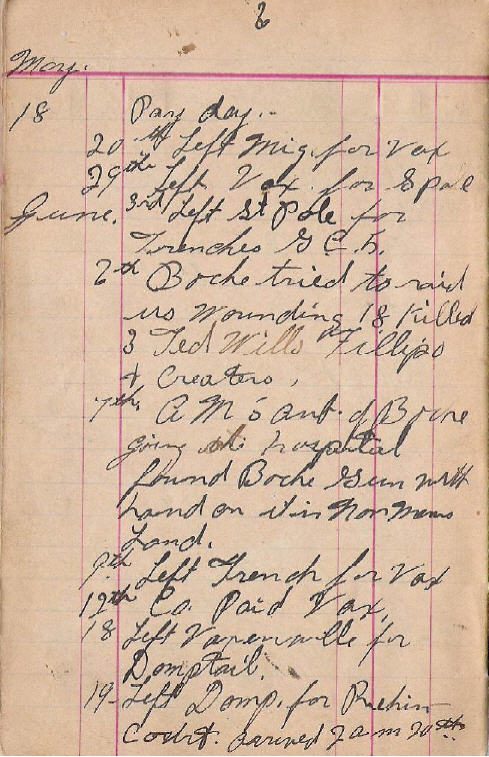 2
May.
18 Pay day..
20th Left Mig. for Vax
29th Left Vax. for S pole
June. 3rd Left St Pole for
Trenches G.C.
6th Boche tried to raid
us Wounding 18 Killed
3 Ted Wills Fillipo
& Creaters,
7th, A M Boche
going hospital
found Boche Gun with
hand on it in Non Mans
Land.
9th Left Trench for Vax
12th Co. Paid Vax,
18 Left Varenville for
Domptail.
19- Left Domp. for
Court. arrived 2 am 20th.